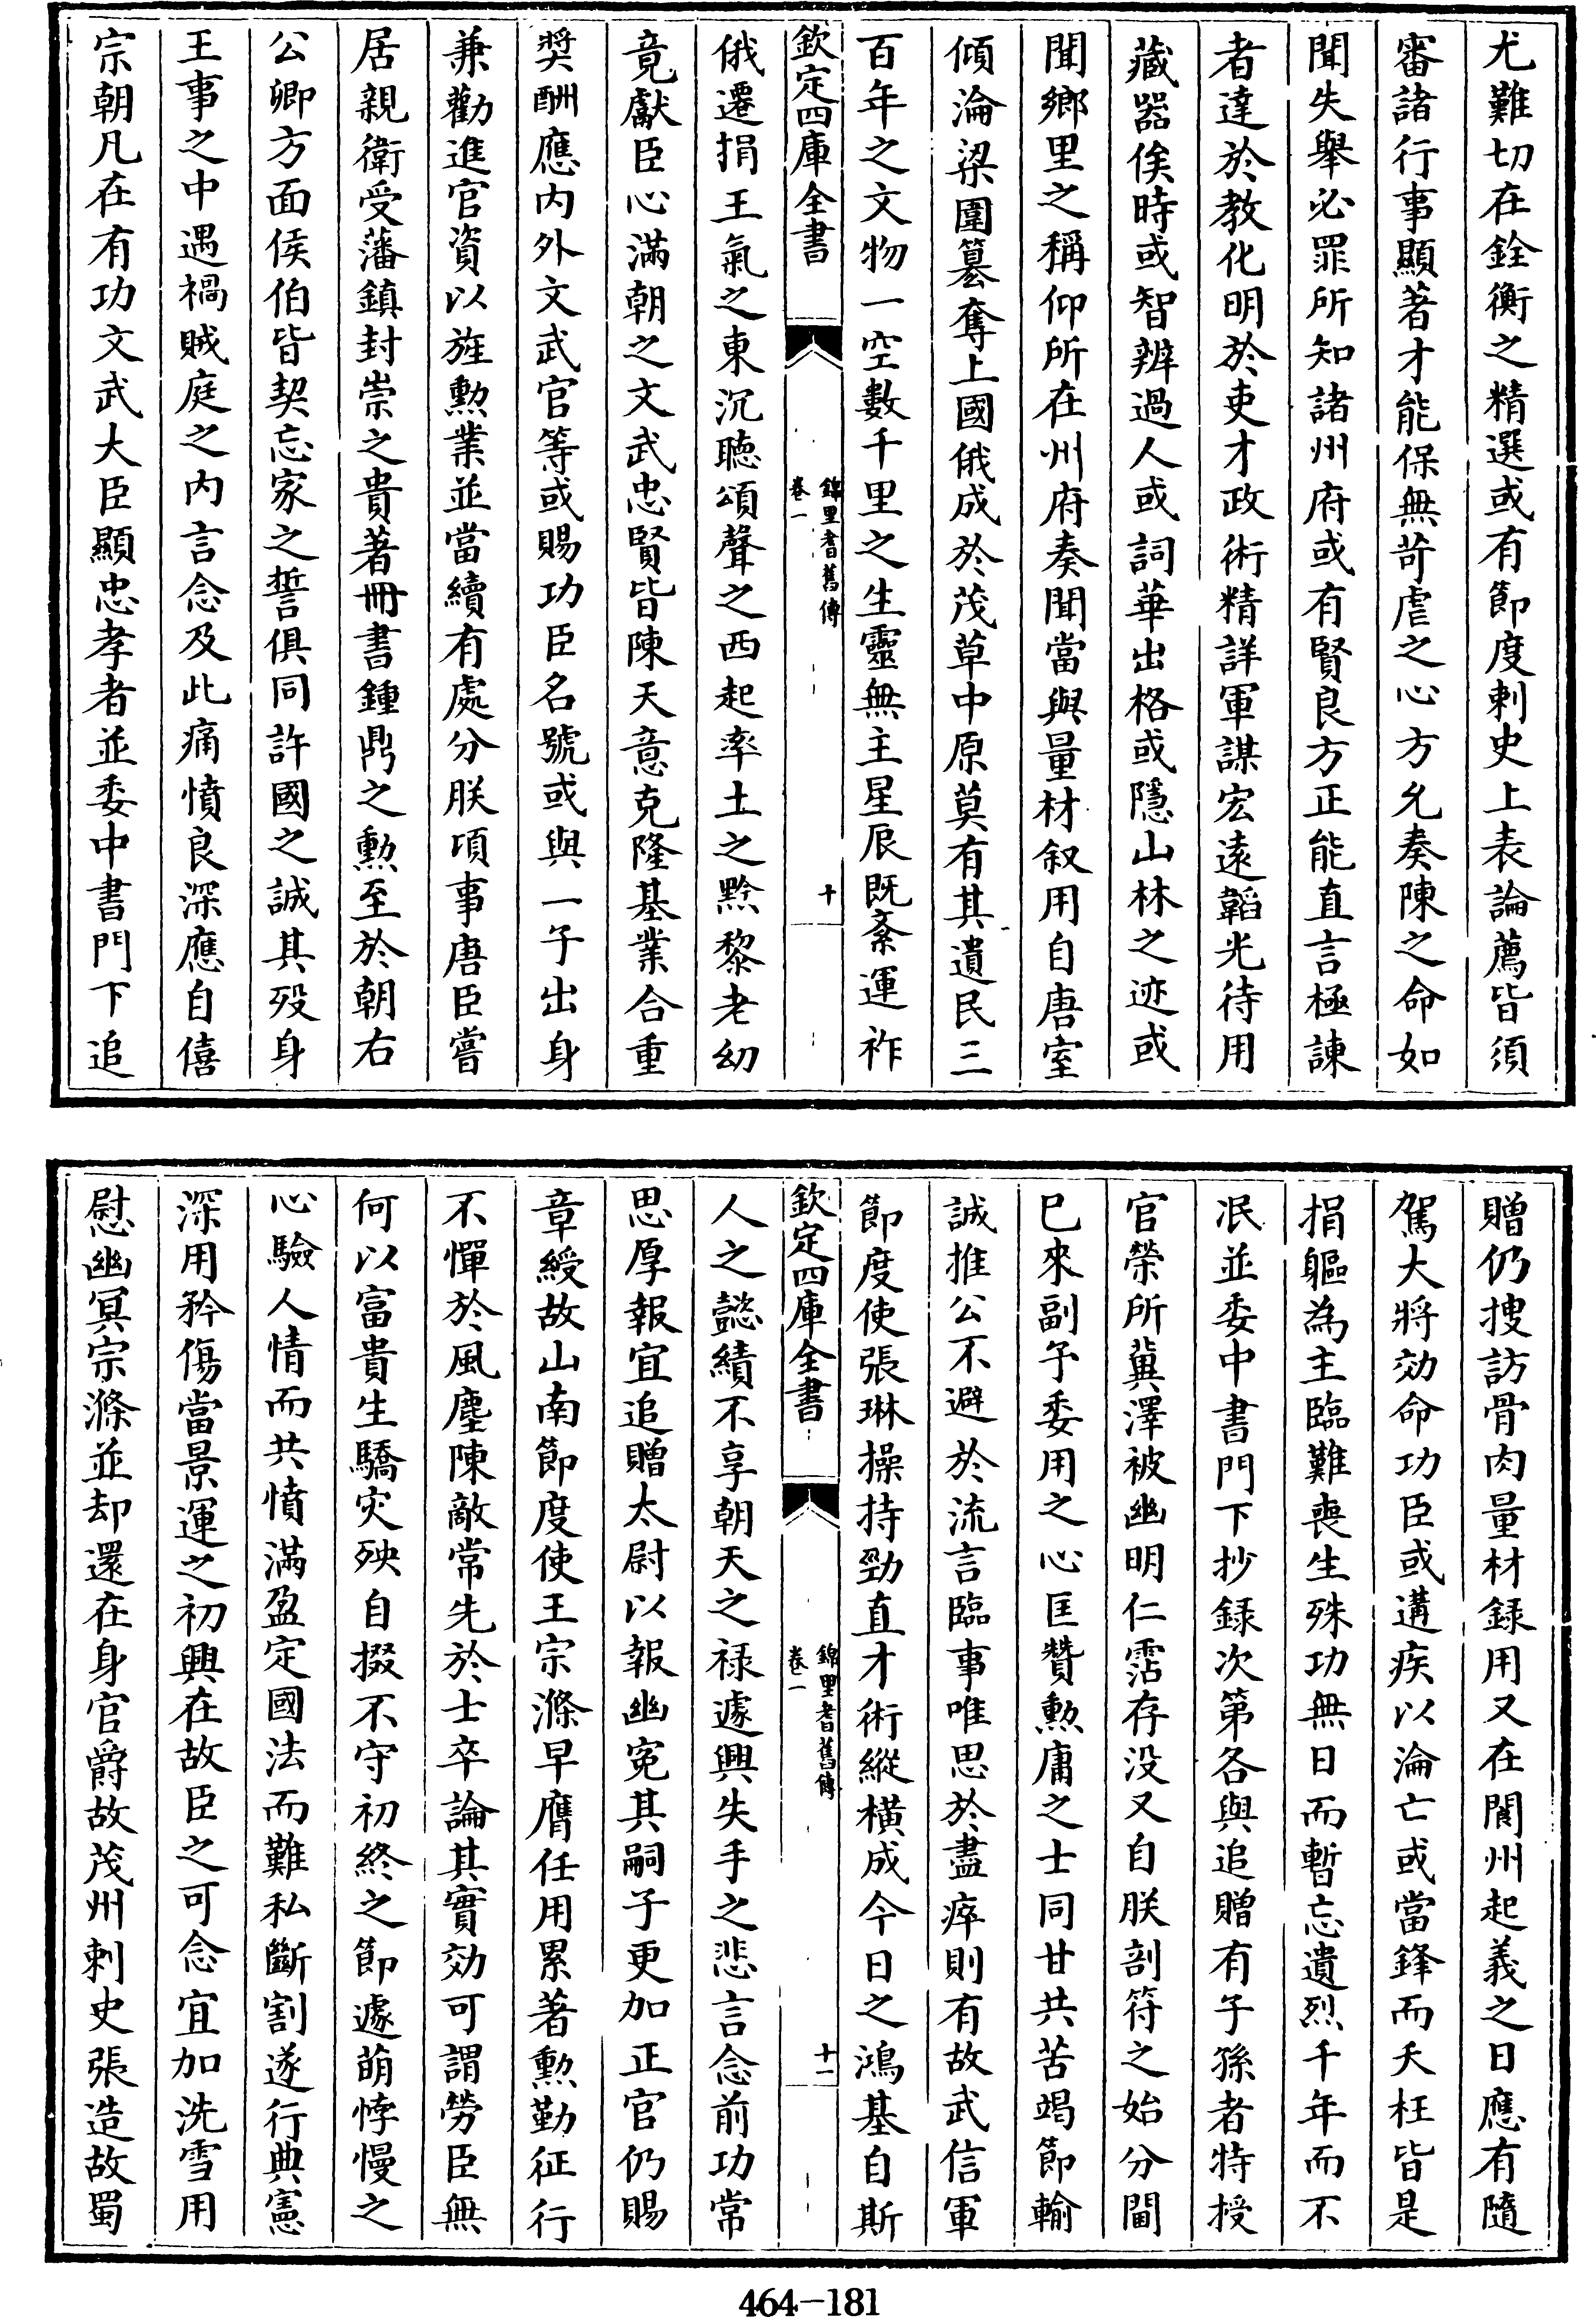 尤難切在銓衡之精選或有節度刺史上表論薦皆須
審諸行事顯著才能保無苛虐之心方允奏陳之命如
聞失舉必罪所知諸州府或有賢良方正能直言極諫
者達於教化明於吏才政術精詳軍謀宏遠韜光待用
藏器俟時或智辨過人或詞華出格或隱山林之迹或
聞鄉里之稱仰所在州府奏聞當與量材叙用自唐室
傾淪梁園篡奪上國俄成於茂草中原莫有其遺民三
百年之文物一空數千里之生靈無主星辰既紊運祚
欽定四庫全書
錦里耆舊傳
卷一
十
俄遷捐王氣之東沉聽頌聲之西起率土之黔黎老幼
竟獻臣心滿朝之文武忠賢皆陳天意克隆基業合重
奬酬應内外文武官等或賜功臣名號或與一子出身
兼勸進官資以旌勲業並當續有處分朕項事唐臣嘗
居親衛受藩鎮封崇之貴著冊書鍾鼎之勲至於朝右
公卿方面侯伯皆契忘家之誓俱同許國之誠其殁身
王事之中遇禍賊庭之内言念及此痛憤良深應自僖
宗朝凡在有功文武大臣顯忠孝者並委中書門下追
贈仍捜訪骨肉量材録用又在閬州起義之日應有隨
駕大將効命功臣或遘疾以淪亡或當鋒而夭枉皆是
捐軀為主臨難喪生殊功無日而暫忘遺烈千年而不
泯並委中書門下抄録次第各與追贈有子孫者特授
官榮所冀澤被幽明仁霑存没又自朕剖符之始分閫
已來副予委用之心匡贊勲庸之士同甘共苦竭節輸
誠推公不避於流言臨事唯思於盡瘁則有故武信軍
節度使張琳操持勁直才術縱横成今日之鴻基自斯
欽定四庫全書
錦里耆舊傳
卷一
十一
人之懿績不享朝天之禄遽興失手之悲言念前功常
思厚報宜追贈太尉以報幽寃其嗣子更加正官仍賜
章綬故山南節度使王宗滌早膺任用累著勲勤征行
不憚於風塵陳敵常先於士卒論其實効可謂勞臣無
何以富貴生驕灾殃自掇不守初終之節遽萌悖慢之
心驗人情而共憤滿盈定國法而難私斷割遂行典憲
深用矜傷當景運之初興在故臣之可念宜加洗雪用
慰幽冥宗滌並却還在身官爵故茂州刺史張造故蜀
464-181